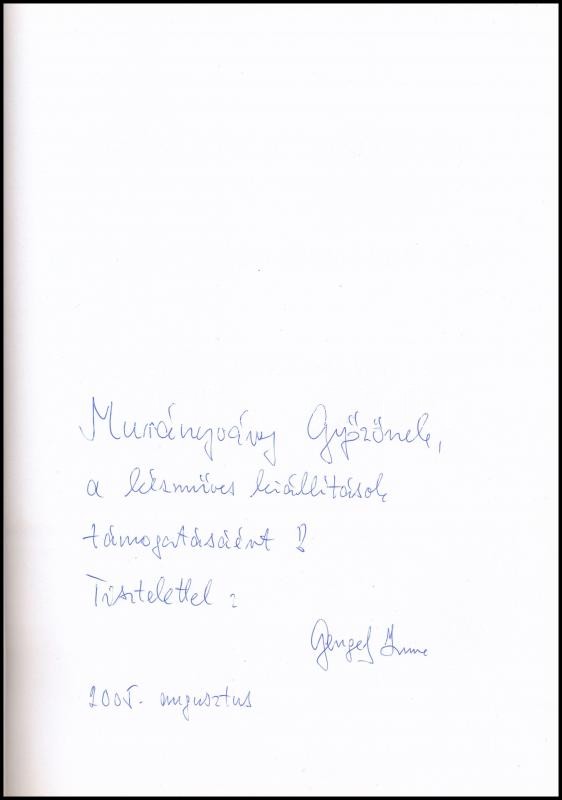 Murányváry Győzőnek,
a kézműves kiállítások
támogatásáért!
Tisztelettel:
Imre
2005. augusztus